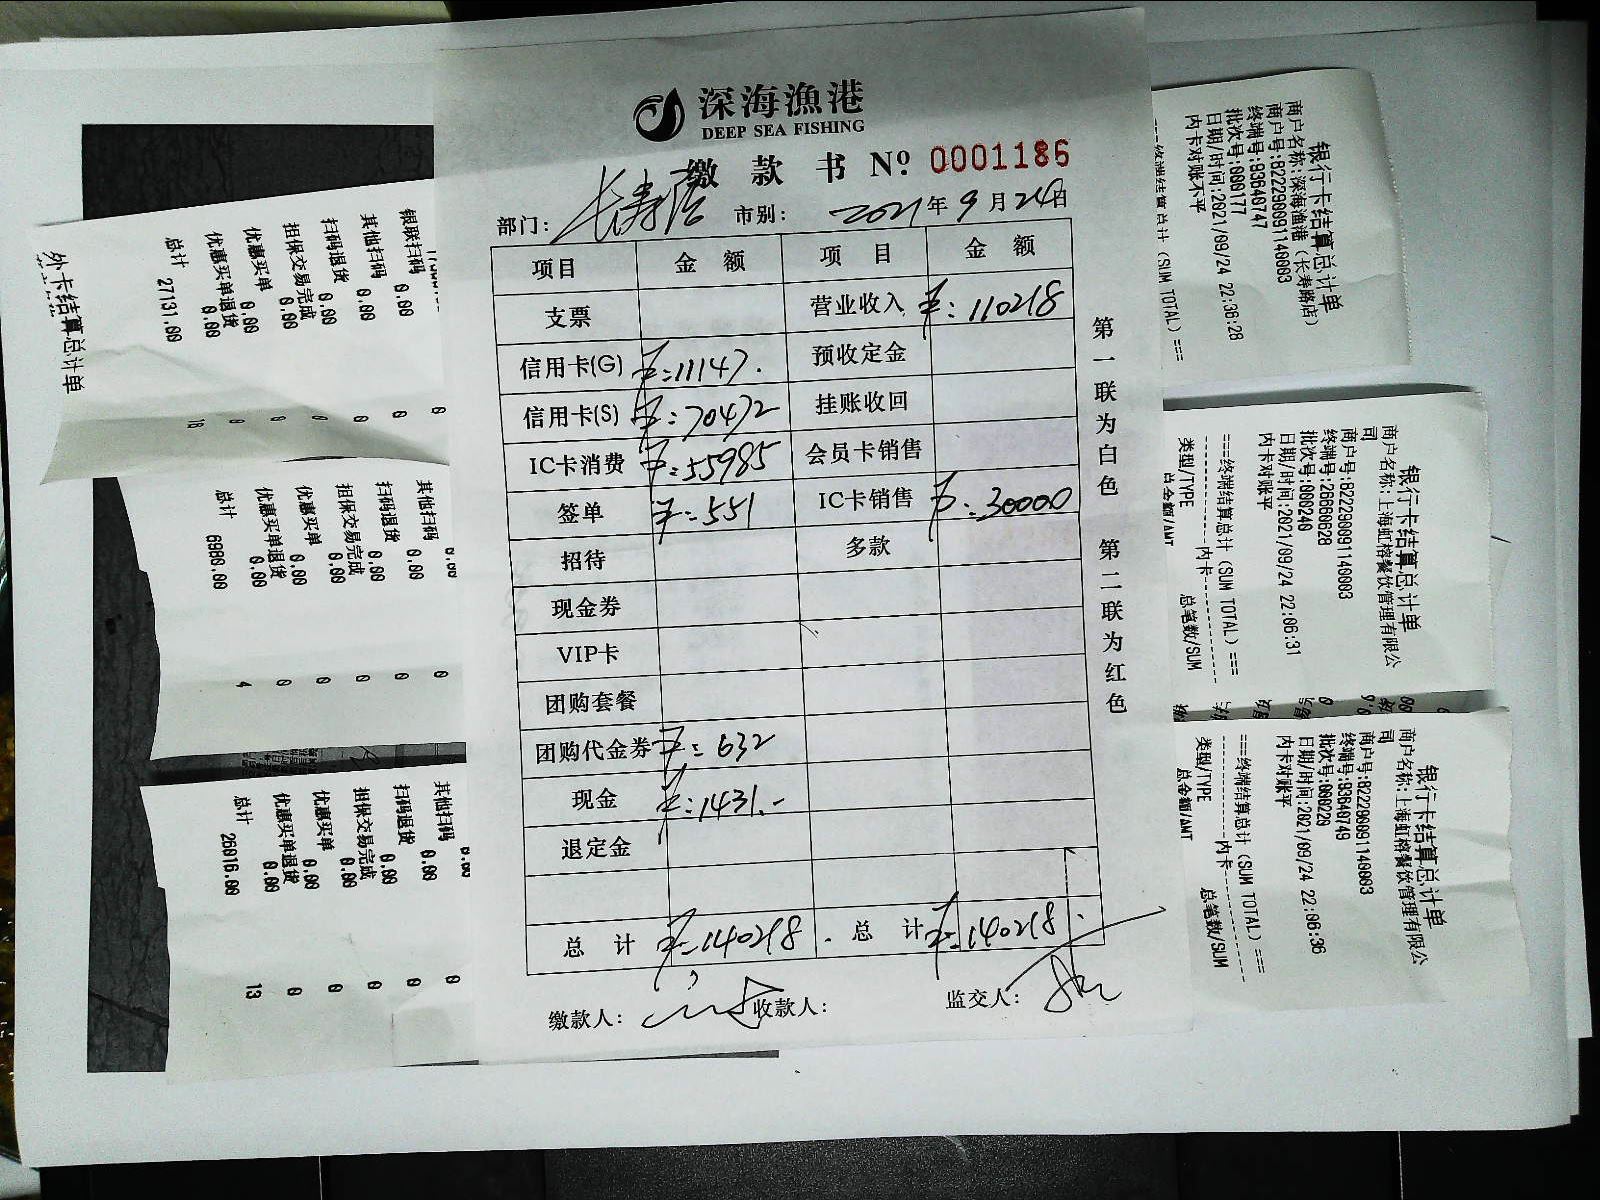 深海渔港
DEEP SEA FISHING
缴款书 Nº. 0001186
部门: 长寿店 市别: 2021年9月24日
项目 金额 项目 金额
支票 营业收入 ¥:110218
信用卡(G) ¥:11147. 预收定金
信用卡(S) ¥:70472 挂账收回
IC卡消费 ¥:55985 会员卡销售
签单 ¥:551 IC卡销售 ¥:30000
招待 多款
现金券
VIP卡
团购套餐
团购代金券 ¥:632
现金 ¥:1431.-
退定金
总计 ¥:140218. 总计 ¥:140218.
缴款人: 收款人: 监交人:
第一联为白色 第二联为红色
银联扫码 0.00 0
其他扫码 0.00 0
扫码退货 0.00 0
担保交易完成 0.00 0
优惠买单 0.00 0
优惠买单退货 0.00 0
总计 27131.00 18
外卡结算总计单
其他扫码 0.00 0
扫码退货 0.00 0
担保交易完成 0.00 0
优惠买单 0.00 0
优惠买单退货 0.00 0
总计 6980.00 4
其他扫码 0.00 0
扫码退货 0.00 0
担保交易完成 0.00 0
优惠买单 0.00 0
优惠买单退货 0.00 0
总计 26016.00 13
银行卡结算总计单
商户名称:深海渔港(长寿路店)
商户号:822290091140003
终端号:93640747
批次号:000177
日期/时间:2021/09/24 22:36:28
内卡对账不平
===终端结算总计(SUM TOTAL)===
银行卡结算总计单
商户名称:上海虹榕餐饮管理有限公
司
商户号:822290091140003
终端号:26660628
批次号:000240
日期/时间:2021/09/24 22:06:31
内卡对账平
===终端结算总计(SUM TOTAL)===
----------内卡----------
类型/TYPE 总笔数/SUM
总金额/AMT
银行卡结算总计单
商户名称:上海虹榕餐饮管理有限公
司
商户号:822290091140003
终端号:93640749
批次号:000229
日期/时间:2021/09/24 22:06:36
内卡对账平
===终端结算总计(SUM TOTAL)===
----------内卡----------
类型/TYPE 总笔数/SUM
总金额/AMT